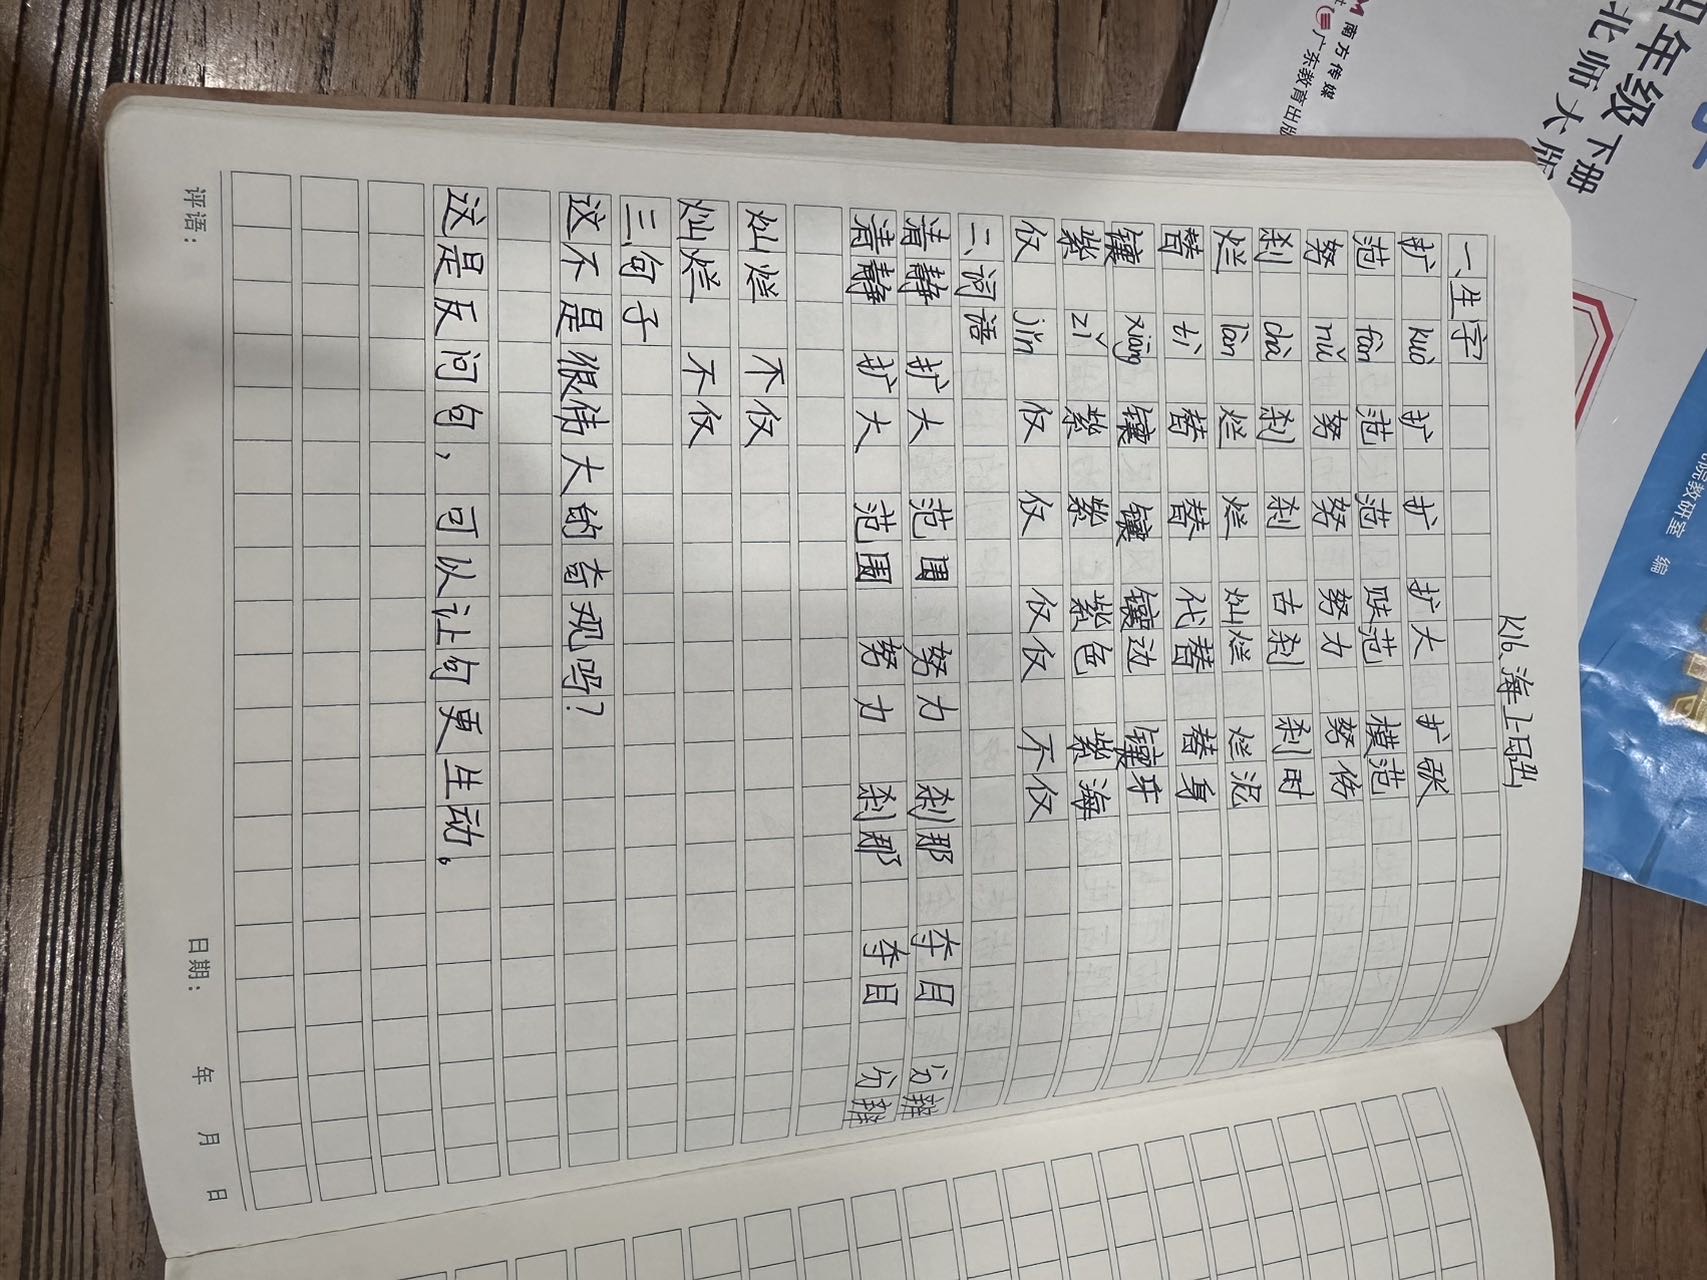 K16、海上日出
一、生字
扩 kuò 扩 扩 扩大 扩张
范 fàn 范 范 防范 模范
努 nǔ 努 努 努力 努伤
刹 chà 刹 刹 古刹 刹时
烂 làn 烂 烂 灿烂 烂泥
替 tì 替 替 代替 替身
镶 xiāng 镶 镶 镶边 镶牙
紫 zǐ 紫 紫 紫色 紫海
仅 jǐn 仅 仅 仅仅 不仅
二、词语
清静 扩大 范围 努力 刹那 夺目 分辨
清静 扩大 范围 努力 刹那 夺目 分辨
灿烂 不仅
灿烂 不仅
三、句子
这不是很伟大的奇观吗?
这是反问句,可以让句更生动。
评语:
日期: 年 月 日
四年级 下册
北师大版
南方传媒
广东教育出版
教研室 编